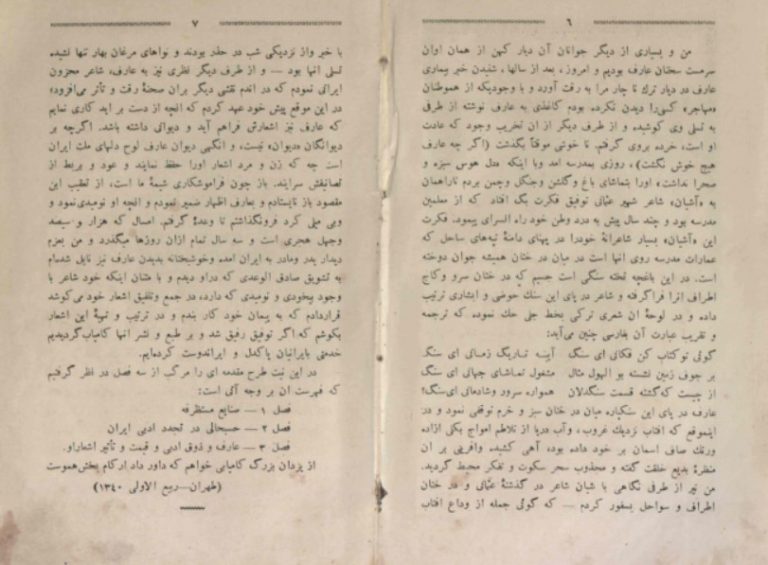 ٦
من و بسیاری از دیگر جوانان آن دیار کهن از همان اوان
سرمست سخنان عارف بودیم و امروز، بعد از سالها، شنیدن خبر بیماری
عارف در دیار ترك نا چار مرا به رقت آورد و با وجودیکه از هموطنان
«مهاجر» کسی را دیدن نکرده بودم کاغذی به عارف نوشته از طرفی
به تسلی وی کوشیده و از طرف دیگر از ان تخریب وجود که عادت
او است، خرده بروی گرفتم. نا خوشی موقتاً بگذشت (اگر چه عارف
هیچ خوش نگشت)، روزی بمدرسه امد وبا اینکه مثل هوس سبزه و
صحرا نداشت» اورا بتماشای باغ وگلشن وجنگل وچمن بردم تاراهمان
به «آشیان» شاعر شهیر عثمانی توفیق فکرت بگ افتاد که از معلمین
مدرسه بود و چند سال پیش به درد وطن خود راه السرای پیمود. فکرت
این «آشیان» بسیار شاعرانهٔ خودرا در پهنای دامنهٔ تپه‌های ساحل که
عمارات مدرسه روی انها است در میان در ختان همیشه جوان دوخته
است. در این باغچه تخته سنگی است جسیم که در ختان سرو وکاج
اطراف انرا فراگرفته و شاعر در پای این سنك حوضی و ابشاری ترتیب
داده و در لوحهٔ ان شعری ترکی بخط جلی حك نموده که ترجمه
و تقریب عبارت آن بفارسی چنین می‌آید:
گوئی توکتاب کن فکانی ای سنگ آینه تماریك زمانی ای سنگ
بر جوف زمین نشسته بو الهول مثال مشغول تماشای جهانی ای سنگ
از چیست که گشته قسمت سنگدلان همواره سرور وشادمانی ای‌سنگ؟
عارف در پای این سنگپاره میان در ختان سبز و خرم توقفی نمود و در
اینموقع که افتاب نزدیك غروب، وآب دریا از تلاطم امواج یکی ازاده
ورنك صاف اسمان بر خود داده بوده آهی کشید وافرینی بر ان
منظرهٔ بدیع خلقت گفته و مجذوب سحر سکوت و تفکر محیط گردید.
من نیز از طرفی نگاهی با شیان شاعر در گذشتهٔ عثمانی و در ختان
اطراف و سواحل بسفور کردم — که گوئی جمله از وداع افتاب
٧
با خبر واز نزدیکی شب در حذر بودند و نواهای مرغان بهار تنها نشید
تسلی انها بود — و از طرف دیگر نظری نیز به عارف، شاعر محزون
ایرانی نمودم که در اندم نقشی دیگر بران صحنهٔ رقت و تأثر می‌افزود؛
در این موقع پیش خود عهد کردم که انچه از دست بر اید کاری نمایم
که عارف نیز اشعارش فراهم آید و دیوانی داشته باشد. اگرچه بر
دیوانگان «دیوان» نیست، و انگهی دیوان عارف لوح دلهای ملت ایران
است چه که زن و مرد اشعار اورا حفظ نمایند و عود و بربط از
تصانیفش سرایند. باز چون فراموشکاری شیمهٔ ما است، از تعقیب این
مقصود باز نایستادم و بعارف اظهار ضمیر نمودم و انچه او نومیدی‌نمود و
وبی میلی کرد فرونگذاشتم تا وعدهٔ گرفتم. امسال که هزار و سیصد
وچهل هجری است و سه سال تمام ازان روزها میگذرد و من بعزم
دیدار پدر ومادر به ایران امده وخوشبختانه بدیدن عارف نیز نایل شده‌ام
به تشویق صادق الوعدی که دراو دیدم و با مشان اینکه خود شاعر با
وجود بیخودی و نومیدی که دارد، در جمع وتلفیق اشعار خود می‌کوشد
قراردادم که به پیمان خود کار بندم و در ترتیب و تهیهٔ این اشعار
بکوشم که اگر توفیق رفیق شد و بر طبع و نشر انها کامیاب‌گردیدیم
خدمتی بایرانیان پاکدل و ایراندوست کرده‌ایم.
در این نیت طرح مقدمه ای را مرکب از سه فصل در نظر گرفتیم
که فهرست ان بر وجه آتی است:
فصل ۱ — صنایع مستظرفه
فصل ۲ — حسبحالی در تجدد ادبی ایران
فصل ۳ — عارف و ذوق ادبی و قیمت و تأثیر اشعاراو.
از یزدان بزرگ کامیابی خواهم که داور داد ارکام بخش‌هموست
(طهران—ربیع الاولی ۱۳٤۰)